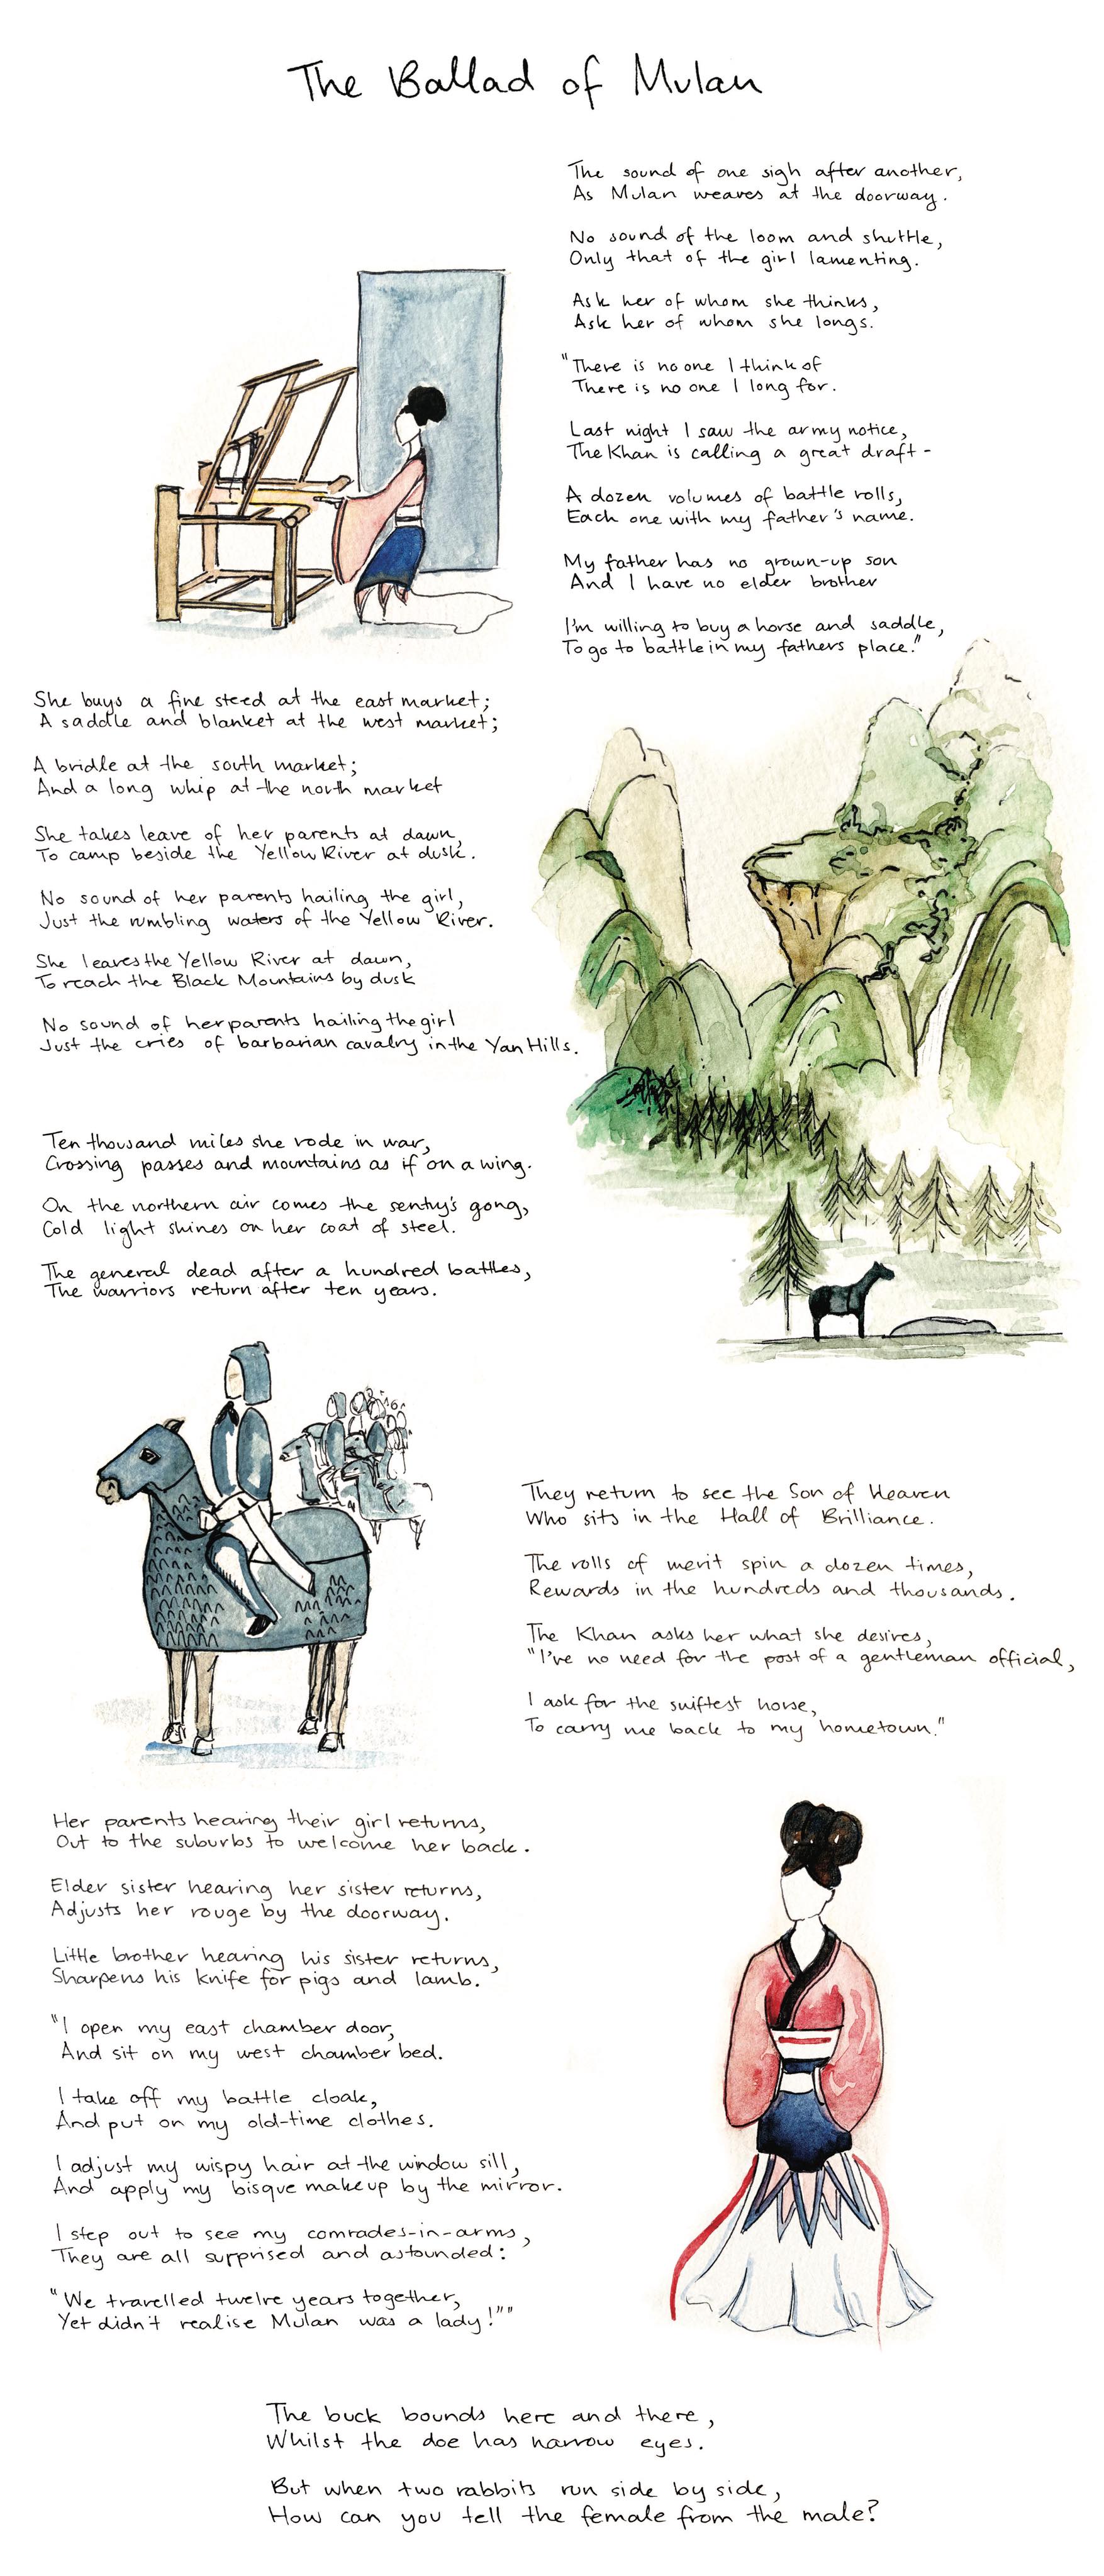 The Ballad of Mulan
The sound of one sigh after another,
As Mulan weaves at the doorway.
No sound of the loom and shuttle,
Only that of the girl lamenting.
Ask her of whom she thinks,
Ask her of whom she longs.
"There is no one I think of
There is no one I long for.
Last night I saw the army notice,
The Khan is calling a great draft -
A dozen volumes of battle rolls,
Each one with my father's name.
My father has no grown-up son
And I have no elder brother
I'm willing to buy a horse and saddle,
To go to battle in my fathers place."
She buys a fine steed at the east market;
A saddle and blanket at the west market;
A bridle at the south market;
And a long whip at the north market
She takes leave of her parents at dawn,
To camp beside the Yellow River at dusk.
No sound of her parents hailing the girl,
Just the rumbling waters of the Yellow River.
She leaves the Yellow River at dawn,
To reach the Black Mountains by dusk
No sound of her parents hailing the girl
Just the cries of barbarian cavalry in the Yan Hills.
Ten thousand miles she rode in war,
Crossing passes and mountains as if on a wing.
On the northern air comes the sentry's gong,
Cold light shines on her coat of steel.
The general dead after a hundred battles,
The warriors return after ten years.
They return to see the Son of Heaven
Who sits in the Hall of Brilliance.
The rolls of merit spin a dozen times,
Rewards in the hundreds and thousands.
The Khan asks her what she desires,
"I've no need for the post of a gentleman official,
I ask for the swiftest horse,
To carry me back to my hometown."
Her parents hearing their girl returns,
Out to the suburbs to welcome her back.
Elder sister hearing her sister returns,
Adjusts her rouge by the doorway.
Little brother hearing his sister returns,
Sharpens his knife for pigs and lamb.
"I open my east chamber door,
And sit on my west chamber bed.
I take off my battle cloak,
And put on my old-time clothes.
I adjust my wispy hair at the window sill,
And apply my bisque makeup by the mirror.
I step out to see my comrades-in-arms,
They are all surprised and astounded:
"We travelled twelve years together,
Yet didn't realise Mulan was a lady!""
The buck bounds here and there,
Whilst the doe has narrow eyes.
But when two rabbits run side by side,
How can you tell the female from the male?